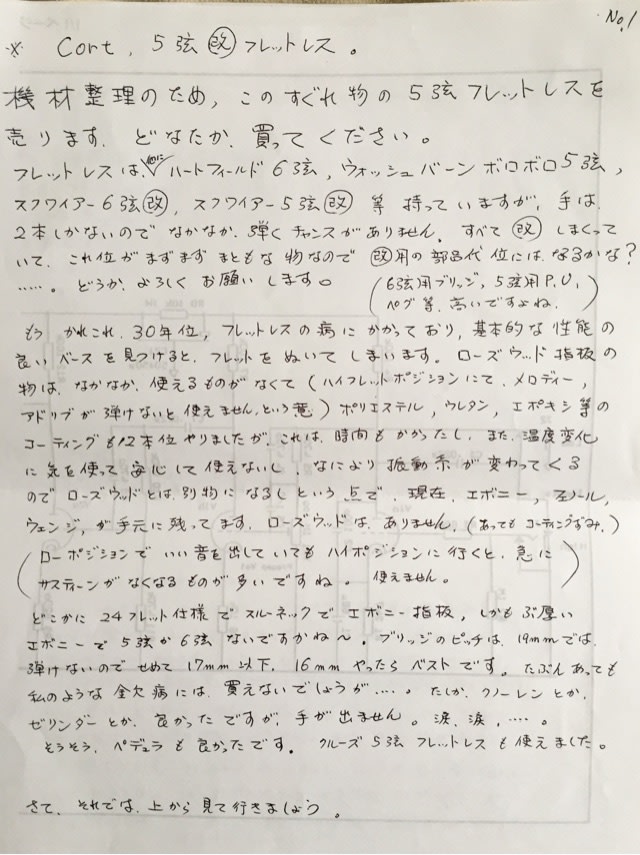 No.1
※ Cort. 5弦 改 フレットレス。
機材整理のため, このすぐれ物の5弦フレットレスを
売ります. どなたか, 買ってください。
フレットレスは, 他に ハートフィールド6弦, ウォッシュバーンボロボロ5弦,
スクワイアー6弦改, スクワイアー5弦改 等 持っていますが, 手は.
2本しかないのでなかなか, 弾くチャンスがありません. すべて改しまくって
いて, これ位がまずまずまともな物なので 改用の部品代位にはなるかな?
……. どうか, よろしくお願いします。
(6弦用ブリッジ, 5弦用P.U,
ペグ等, 高いですよね.)
もうかれこれ, 30年位, フレットレスの病にかかっており, 基本的な性能の
良いベースを見つけると, フレットをぬいてしまいます. ローズウッド指板の
物は, なかなか, 使えるものがなくて (ハイフレットポジションにて, メロディー,
アドリブが弾けないと使えません, という意) ポリエステル, ウレタン, エポキシ等の
コーティングも12本位やりましたが, これは, 時間もかかったし, また, 温度変化
に気を使って安心して使えないし, なにより振動系が変わってくる
のでローズウッドとは, 別物になるしという点で, 現在, エボニー,
ウェンジ, が手元に残ってます. ローズウッドは, ありません. (あってもコーティングずみ.)
(ローポジションでいい音を出していてもハイポジションに行くと, 急に
サスティーンがなくなるものが多いですね. 使えません。)
どこかに24フレット仕様でスルーネックでエボニー指板, しかもぶ厚い
エボニーで5弦か6弦ないですかね〜. ブリッジのピッチは, 19mmでは,
弾けないのでせめて17mm以下, 16mmやったらベストです. たぶんあっても
私のような金欠病には, 買えないでしょうが…. たしか, クノーレンとか,
ゼリンダーとか, 良かったですが, 手が出ません。涙, 涙, ….
そうそう, ペデュラも良かったです. クルーズ5弦フレットレスも使えました。
さて, それでは, 上から見て行きましょう.